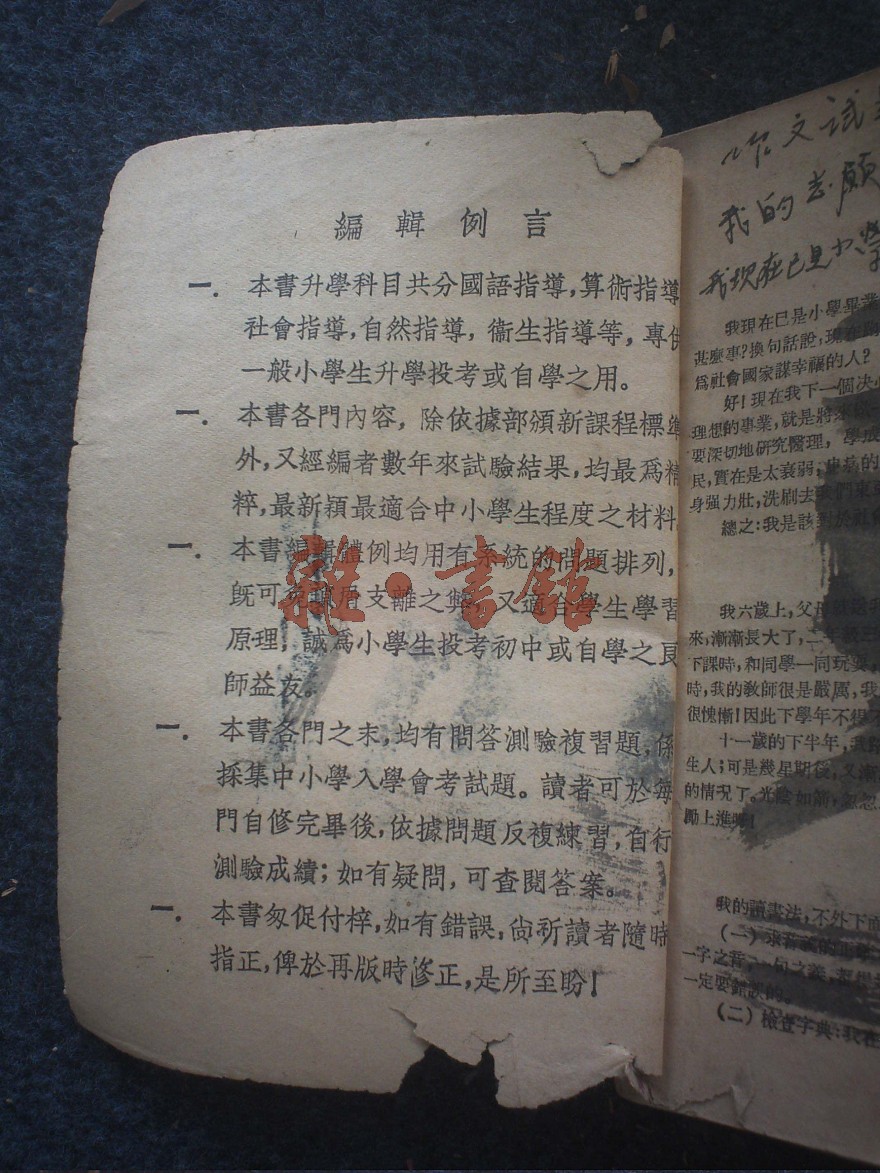 編輯例言
一. 本書升學科目共分國語指導,算術指導
社會指導,自然指導,衞生指導等,專供
一般小學生升學投考或自學之用。
一. 本書各門內容,除依據部頒新課程標準
外,又經編者數年來試驗結果,均最爲精
粹,最新穎最適合中小學生程度之材料。
一. 本書編輯體例均用有系統的問題排列,
旣可免 支離之弊,又適合學生學習
原理,誠爲小學生投考初中或自學之良
師益友。
一. 本書各門之末,均有問答測驗複習題,係
採集中小學入學會考試題。讀者可於每
門自修完畢後,依據問題反複練習,自行
測驗成績;如有疑問,可查閱答案。
一. 本書匆促付梓,如有錯誤,尙祈讀者隨時
指正,俾於再版時修正,是所至盼!
雜·書館
作文試
我的志願
我現在已是小學
我現在巳是小學畢業
甚麼事?換句話說,現在
爲社會國家謀幸福的人?
好!現在我下一個決心
理想的事業,就是將來
要深切地研究醫理,學成
民,實在是太衰弱;
身強力壯,洗刷去我們東
總之:我是該對於社會
我六歲上,父母就送我
來,漸漸長大了,二年級
下課時,和同學一同玩耍,
時,我的敎師很是嚴厲,我
很愧慚!因此下學年不
十一歲的下半年,我
生人;可是幾星期後,又漸
的情況了。光陰如箭,忽忽
勵上進呢!
我的讀書法,不外下面
(一)求音義的正
一字之音,一句之義,都想
一定要錯誤的。
(二)檢查字典:我在